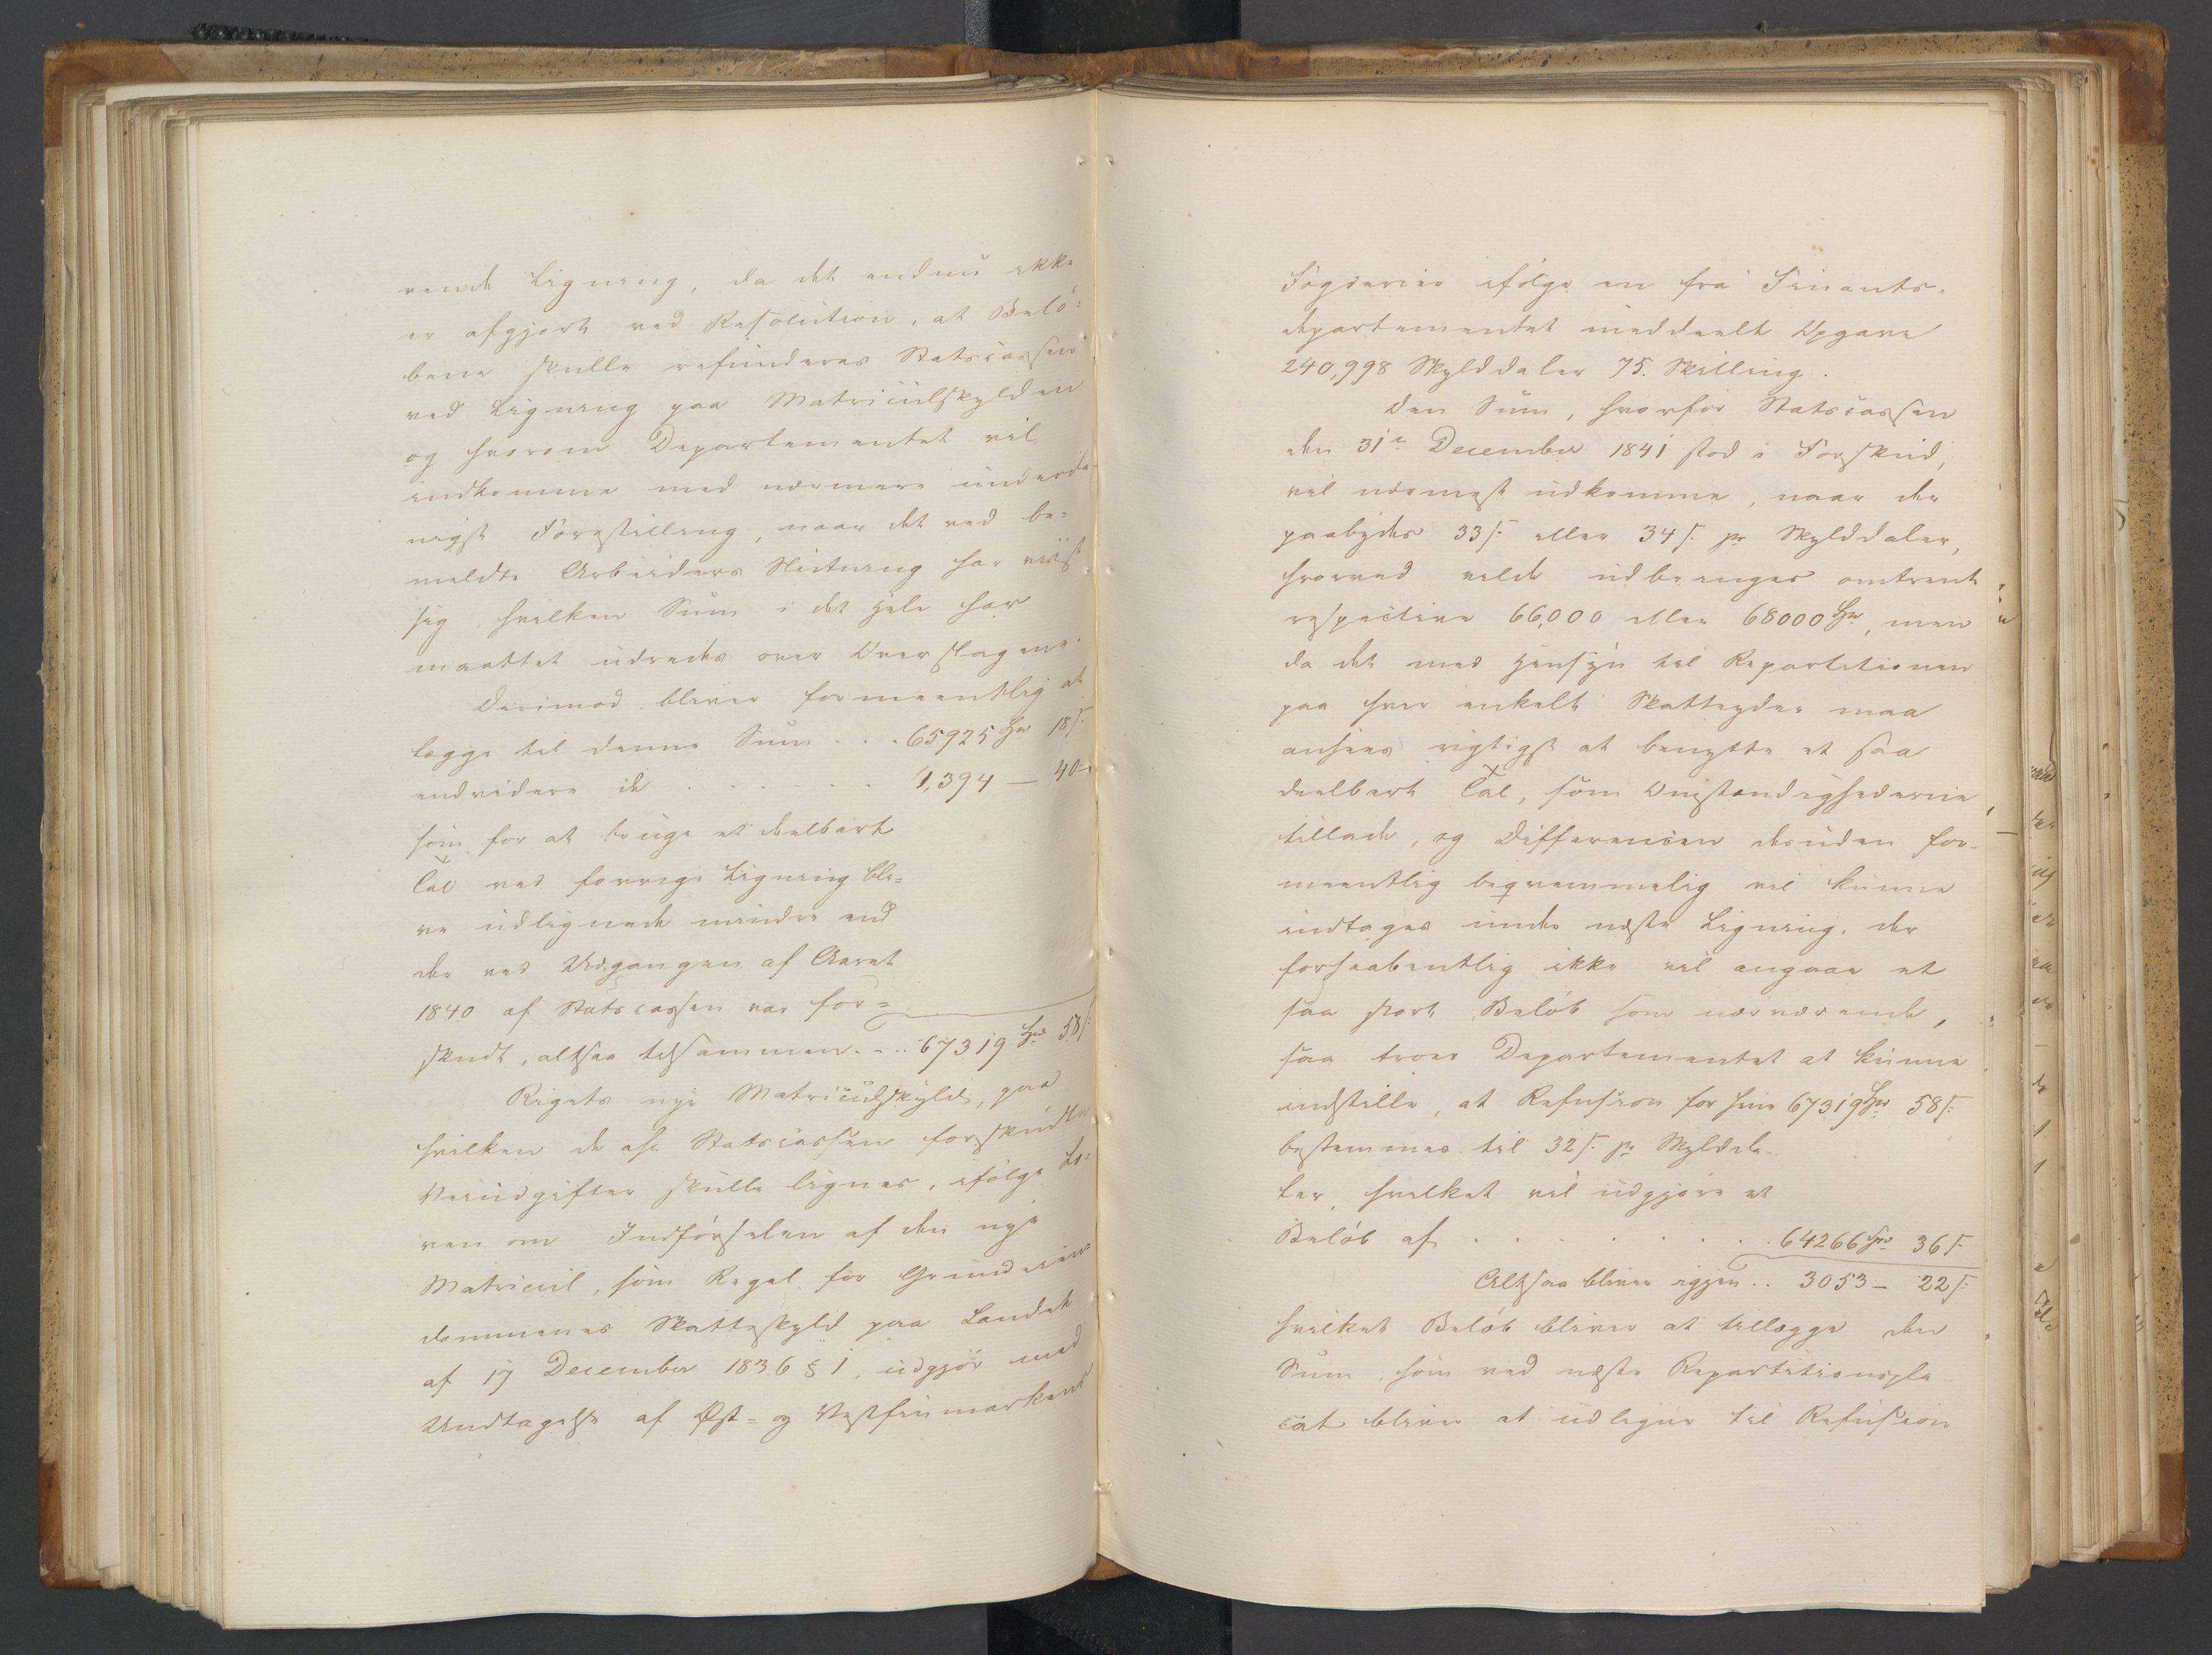 rende Ligning, da det endnu ikke
er afgjort ved Resolution, at Belö-
bene skulle refunderes Statscassen
ved Ligning paa Matriculskylden
og hvorom Departementet vil
indkomme med nærmere underda-
nigst Forestilling, naar det ved be-
meldte Arbeiders Slutning har viist
sig, hvilken Sum i det Hele har
maattet udredes over Overslagene.
Derimod bliver formeentlig at
lægge til denne Sum . . . 65925 Spd 18 s.
endvidere de . . . . . . 1,394 — 40 -
som for at bruge et deelbart
Tal ved forrige Ligning ble-
ve udlignede mindre end
der ved Udgangen af Aaret
1840 af Statscassen var for-
skudt, altsaa tilsammen . . . 67319 Spd 58 s.
Rigets nye Matriculskyld, paa
hvilken de af Statscassen forskudte
Veiudgifter skulle lignes, ifölge Lo-
ven om Indförselen af den nye
Matricul, som Regel for Grundeien-
dommenes Skatteskyld paa Landet
af 17 December 1836 § 1, udgjör med
Undtagelse af Øst- og Vestfinmarkens
Fogderier ifölge en fra Finants-
departementet meddeelt Opgave
240,998 Skylddaler 75. Skilling.
Den Sum, hvorfor Statscassen
den 31te December 1841 stod i Forskud,
vil nærmest udkomme, naar der
paabydes 33 s. eller 34 s. pr Skylddaler,
hvorved vilde udbringes omtrent
respective 66,000 eller 68000 Spd, men
da det med Hensyn til Repartitionen
paa hver enkelt Skatteyder maa
ansees rigtigst at benytte et saa
deelbart Tal, som Omstændighederne
tillade, og Differencen desuden for-
meentlig beqvemmelig vil kunne
indtages under næste Ligning, der
forhaabentlig ikke vil angaae et
saa stort Belöb som nærværende,
saa troer Departementet at kunne
indstille, at Refusion for hine 67319 Spd 58 s.
bestemmes til 32 s. pr Skyldda-
ler, hvilket vil udgjöre et
Belöb af . . . . . . . . 64266 Spd 36 s.
Altsaa bliver igjen . . 3053 — 22 s.
hvilket Belöb bliver at tillægge den
Sum, som ved næste Repartitionspla-
cat bliver at udligne til Refusion